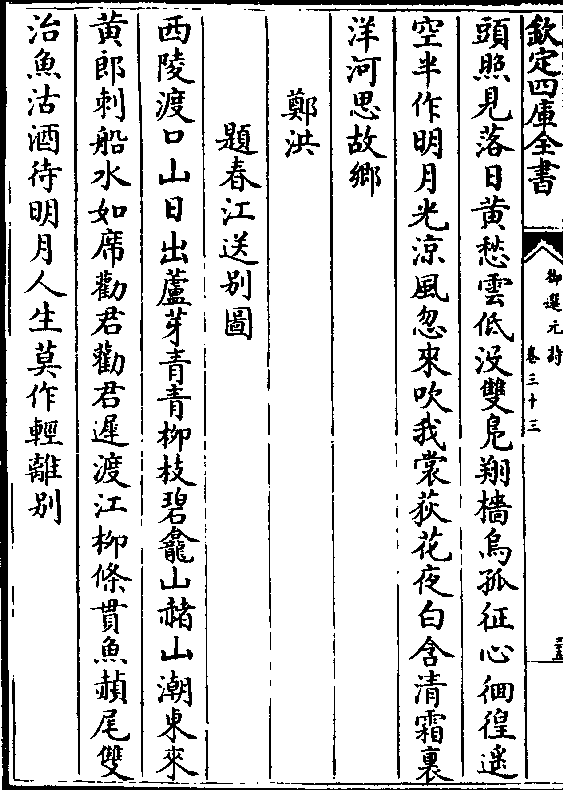 欽定四庫全書
御選元詩
卷三十三
頭照見落日黃愁雲低没雙鳧翔檣烏孤征心徊徨遥
空半作明月光涼風忽來吹我裳荻花夜白含清霜裏
洋河思故鄉
鄭洪
題春江送别圖
西陵渡口山日出蘆芽青青柳枝碧龕山赭山潮東來
黄郎刺船水如席勸君勸君遲渡江柳條貫魚赬尾雙
治魚沽酒待明月人生莫作輕離别